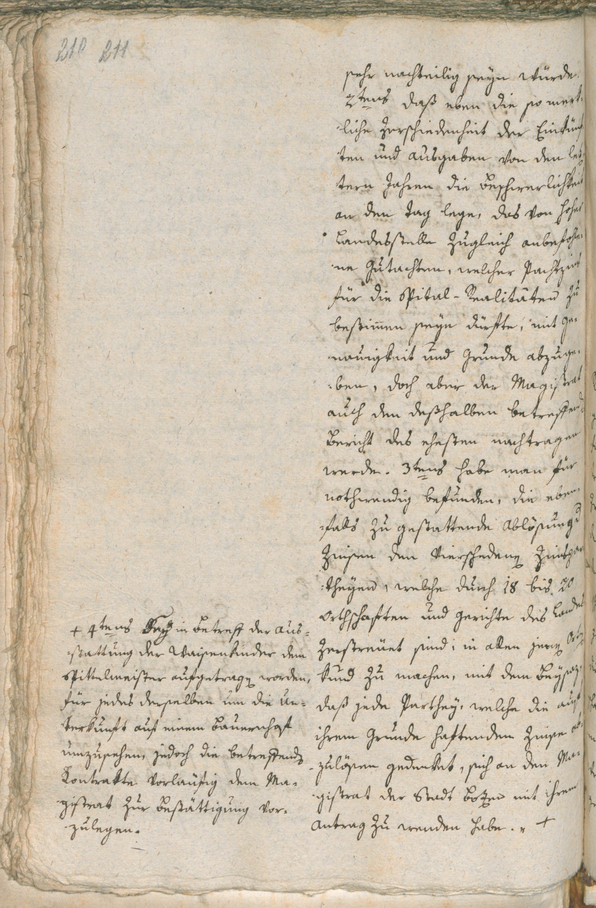 210 211
sehr nachteilig seyn würde.
2tens daß eben die so merk-
liche Zerschiedenheit der Einkünf
ten und ausgaben von den letz
tern Jahren die Beschwerlichkeit
an den Tag lege, das von hoher
Landesstelle zugleich anbefohle
ne Gutachten, welcher Pachtzins
für die Spital-Realitäten zu
bestimmen seyn dürfte, mit ge-
nauigkeit und Grunde abzuge-
ben, doch aber der Magistrat
auch den deßhalben betreffend
Bericht des ehesten nachtragen
werde. 3tens habe man für
nothwendig befunden, die eben
falls zu gestattende Ablösung
Zinsen den Zinspar
theyen, welche durch 18 bis 20
Orthschaften und Gerichte des Landes
zerstreuet sind, in allen
kund zu machen, mit dem Beysaz,
daß jede Parthey, welche die auf
ihrem Grunde haftenden Zinse ab
zulösen gedenket, sich an den Ma-
gistrat der Stadt Botzen mit ihrem
Antrag zu wenden habe. +
+ 4tens Sey in Betreff der aus-
stattung der Waisenkinder dem
Spittelmeister aufgetragen worden,
für jedes derselben um die Un-
terkunft auf einem Bauernhof
umzusehen, jedoch die betreffende
Kontrakte vorläufig dem Ma-
gistrat zur Bestättigung vor-
zulegen.